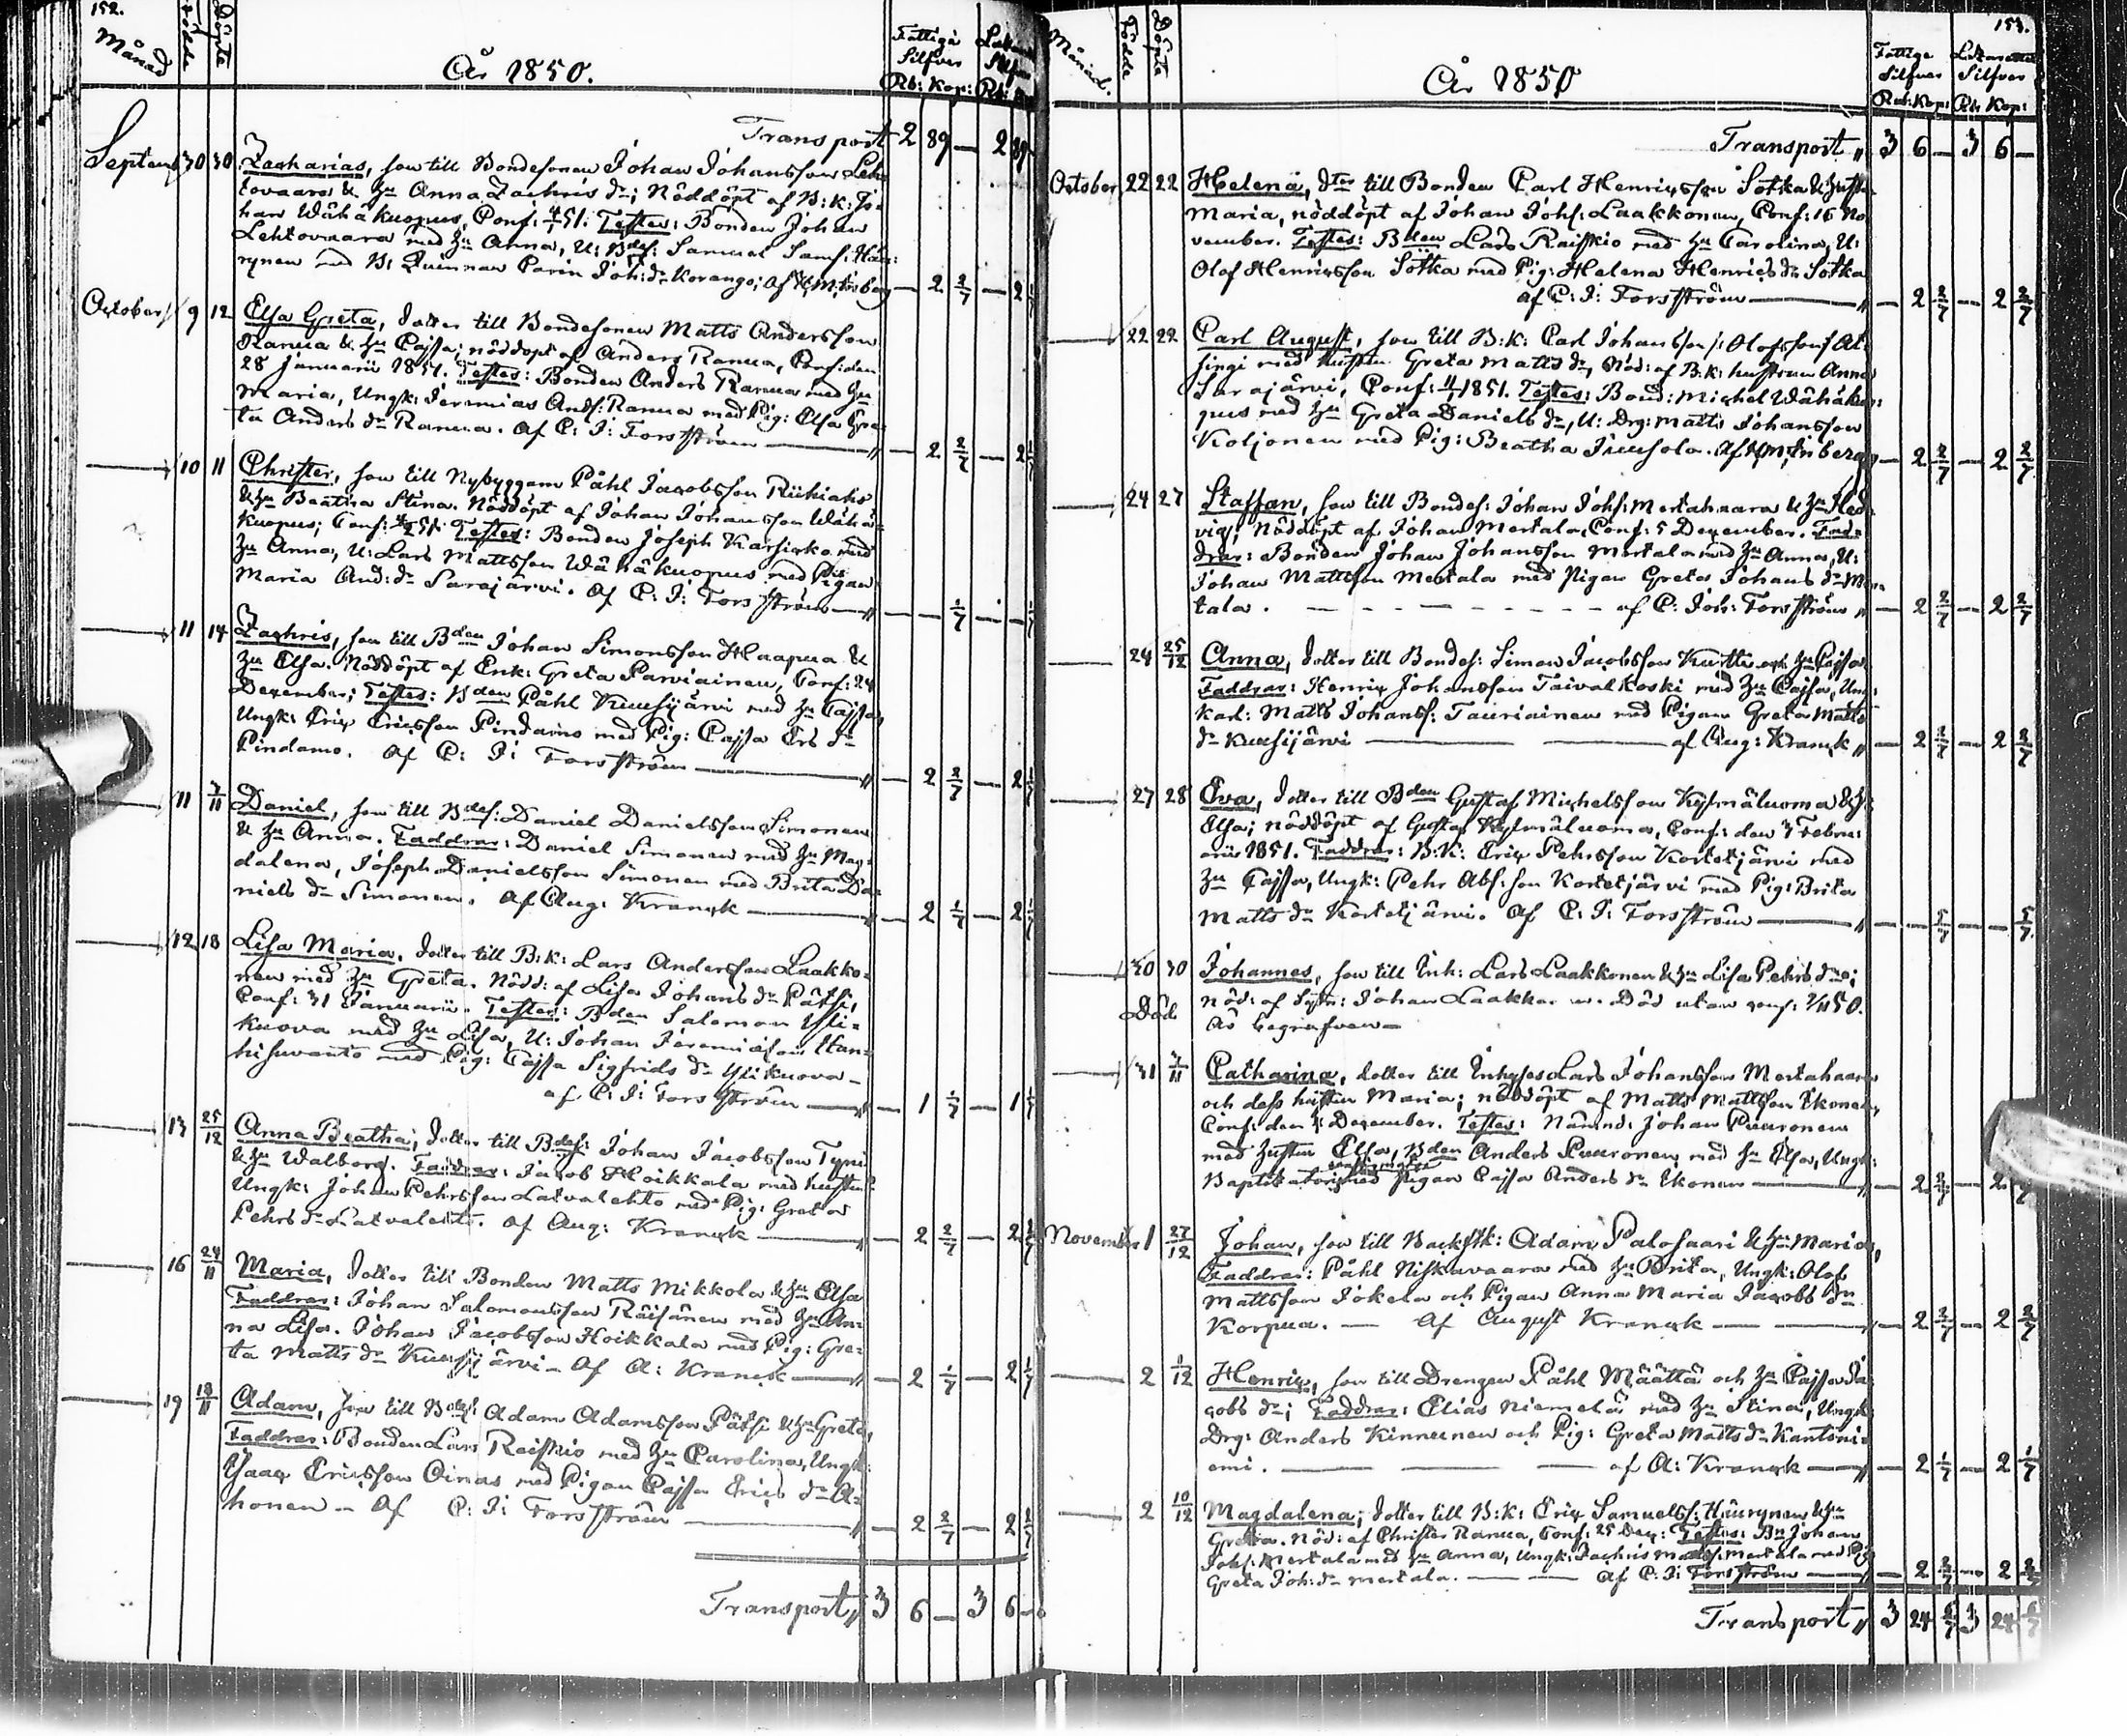 152.
Månad
Födde
Döpte
År 1850.
Fattiga
Silfver
Rb: Kop:
Silfver
Rb:
Transport 2 89 — 2 89
Septemb 30 30 Zacharias, son till Bondesonen Johan Johansson Leh-
tovaara & hu Anna Zachris dr; Nöddöpt af B:k: Jo-
han Wähäkuopus, Conf: 4/1 51. Testes: Bonden Johan
Lehtovaara med hu Anna, U: Bdes: Samuel Sams: Hän-
rynen med B: Qvinnan Carin Joh: dr Korango; af
— 2 2/7 — 2
October 9 12 Elsa Greta, dotter till Bondesonen Matts Andersson
Ranua & hu Cajsa; nöddöpt af Anders Ranua, Conf: den
28 Januarii 1851. Testes: Bonden Anders Ranua med hu
Maria, Ungk: Jeremias Ands: Ranua med Pig: Elsa Gre-
ta Anders dr Ranua. af C: J: Forsström — 2 2/7 — 2
10 11 Christer, son till Nybyggaren Påhl Jacobsson
& hu Beatha Stina. Nöddöpt af Johan Johansson Wähä-
kuopus; Conf: 51. Testes: Bonden Joseph Karsisko med
hu Anna, U: Lars Mattsson Wähäkuopus med Pigan
Maria And: dr Sarajärvi. af C: J: Forsström — — 1/7 — —
11 14 Zachris, son till Bden Johan Simonsson Haapua &
hu Elsa. Nöddöpt af Enk: Greta Parviainen, Conf: 24
December; Testes: Bden Påhl Kuusijärvi med hu Cajsa,
Ungk: Eric Ericsson Pindamo med Pig: Cajsa Ers dr
Pindamo. af C: J: Forsström — 2 2/7 — 2
11 3/11 Daniel, son till Bdes: Daniel Danielsson Simonen
& hu Anna. Faddrar: Daniel Simonen med hu Mag-
dalena, Joseph Danielsson Simonen med Brita Da-
niels dr Simonen. af Aug: Kranck — 2 1/7 — 2 1/7
12 13 Lisa Maria, dotter till B:k: Lars Andersson Laakko-
nen med hu Greta. Nödd: af Lisa Johans dr Pätsi,
Conf: 31 Januarii. Testes: Bden Salomon Yli-
kuova med hu Lisa, U: Johan Jeremiasson
med Pig: Cajsa Sigfrids dr Ylikuova —
af C: J: Forsström — 1 1/7 — 1 1/7
13 25/12 Anna Beatha, dotter till Bdes: Johan Jacobsson
& hu Walborg. Faddrar: Jacob Hoikkala med hustru
Ungk: Johan Pehrsson Latvalehto med Pig: Greta
Pehrs dr Latvalehto. af Aug: Kranck — 2 2/7 — 2 2/7
16 24/11 Maria, dotter till Bonden Matts Mikkola & hu Elsa
Faddrar: Johan Salomonsson Räisänen med hu An-
na Lisa. Johan Jacobsson Hoikkala med Pig: Gre-
ta Matts dr Kuusijärvi — af A: Kranck — 2 1/7 — 2 1/7
19 18/11 Adam, son till Bdes: Adam Adamsson Pätsi & hu Greta,
Faddrar: Bonden Lars Raiskio med hu Carolina, Ungk:
Isaac Ericsson Oinas med Pigan Cajsa Erics dr A-
honen — af C: J: Forsström — 2 2/7 — 2 2/7
Transport 3 6 — 3 6 —
153.
Månad.
Födde
Döpte
År 1850
Fattiga
Silfver
Rub: Kop:
Silfver
Rb Kop:
Transport 3 6 — 3 6 —
October 22 22 Helena, dtr till Bonden Carl Henricsson Sotka & hust:
Maria, nöddöpt af Johan Johs: Laakkonen, Conf: 16 No
vember. Testes: Bden Lars Raiskio med hu Carolina, U:
Olof Henricsson Sotka med Pig: Helena Henrics dr Sotka
af C: J: Forsström — 2 2/7 — 2 2/7
22 22 Carl August, son till B:k: Carl Johansson /: Olofsson/ At-
singi med hustru Greta Matts dr, Nöd: af B:k: hustrun Anna
Sarajärvi, Conf: 4/1 1851. Testes: Bond: Michel Wähäkuo-
pus med hu Greta Daniels dr, U: Drg: Matts Johansson
Koljonen med Pig: Beatha — 2 2/7 — 2 2/7
24 27 Staffan, son till Bondes: Johan Johs: Mertahaara & hu Hed-
vig; Nöddöpt af Johan Mertala, Conf: 5 December. Fad-
drar: Bonden Johan Johansson Mertala med hu Anna, U:
Johan Mattsson Mertala med Pigan Greta Johans dr Mer-
tala. — af C: Joh: Forsström — 2 2/7 — 2 2/7
24 25/12 Anna, dotter till Bondes: Simon Jacobsson Kurtti och hu Cajsa,
Faddrar: Henric Johansson Taivalkoski med hu Cajsa, Ung-
karl: Matts Johanss: Tauriainen med Pigan Greta Matts
dr Kuusijärvi — af Aug: Kranck — 2 2/7 — 2 2/7
27 28 Eva, dotter till Bden Gustaf Michelsson Kysmäluoma & h:
Elsa; nöddöpt af Gustaf Kysmäluoma, Conf: den 3 Febru-
arii 1851. Faddrar: B:k: Eric Pehrsson Kortetjärvi med
hu Cajsa, Ungk: Pehr Abs: son Kortetjärvi med Pig: Brita
Matts dr Kortetjärvi. af C: J: Forsström — — 5/7 — — 5/7
30 30 Johannes, son till Inh: Lars Laakkonen & hu Lisa Pehrs dr;
Död nöd: af Johan Laakko n. Död utan conf: 1/11 50.
Äs begrafven —
31 3/11 Catharina, dotter till Inhyses Lars Johansson Mertahaara
och dess hustru Maria; nöddöpt af Matts Mattsson Ekonen,
Conf: den December. Testes: Nämnd: Johan Puuronen
med hustru Elsa, Bden Anders Puuronen med h: Elsa, Ungk:
med Pigan Cajsa Anders dr Ekonen — 2 2/7 — 2
November 1 27/12 Johan, son till Backstk: Adam Palosaari & hu Maria,
Faddrar: Påhl Niskavaara med hu Brita, Ungk: Olof
Mattsson Jokela och Pigan Anna Maria Jacobs dr
Korpua. — af August Kranck — 2 2/7 — 2 2/7
2 1/12 Henric, son till Drengen Påhl Määttä och hu Cajsa Ja-
cobs dr; Faddrar: Elias Niemelä med hu Stina, Ungk:
Drg: Anders Kinnunen och Pig: Greta Matts dr Kantoni-
emi. — af A: Kranck — 2 1/7 — 2 1/7
2 10/12 Magdalena, dotter till B:k: Eric Samuelss: Häurynen & hu
Greta. Nöd: af Christer Ranua, Conf: 25 Dec: Testes: Bn Johan
Johs: Mertala med hu Anna, Ungk: Zachris Matts: Mertala med Pig
Greta Joh: dr Mertala. — af C: J: Forsström — 2 2/7 — 2 2/7
Transport 3 24 6/7 3 24 6/7